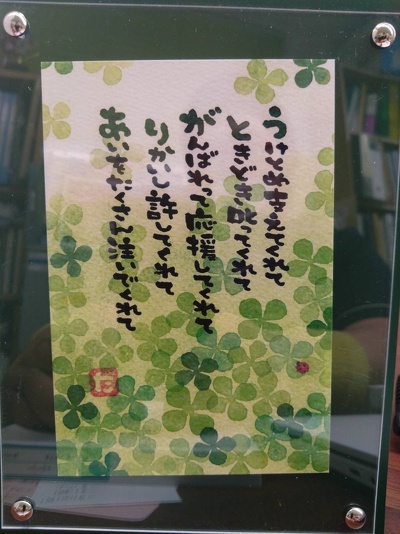 うけとめ支えてくれて
ときどき叱ってくれて
がんばれって応援してくれて
りかいし許してくれて
あいをたくさん注いでくれて